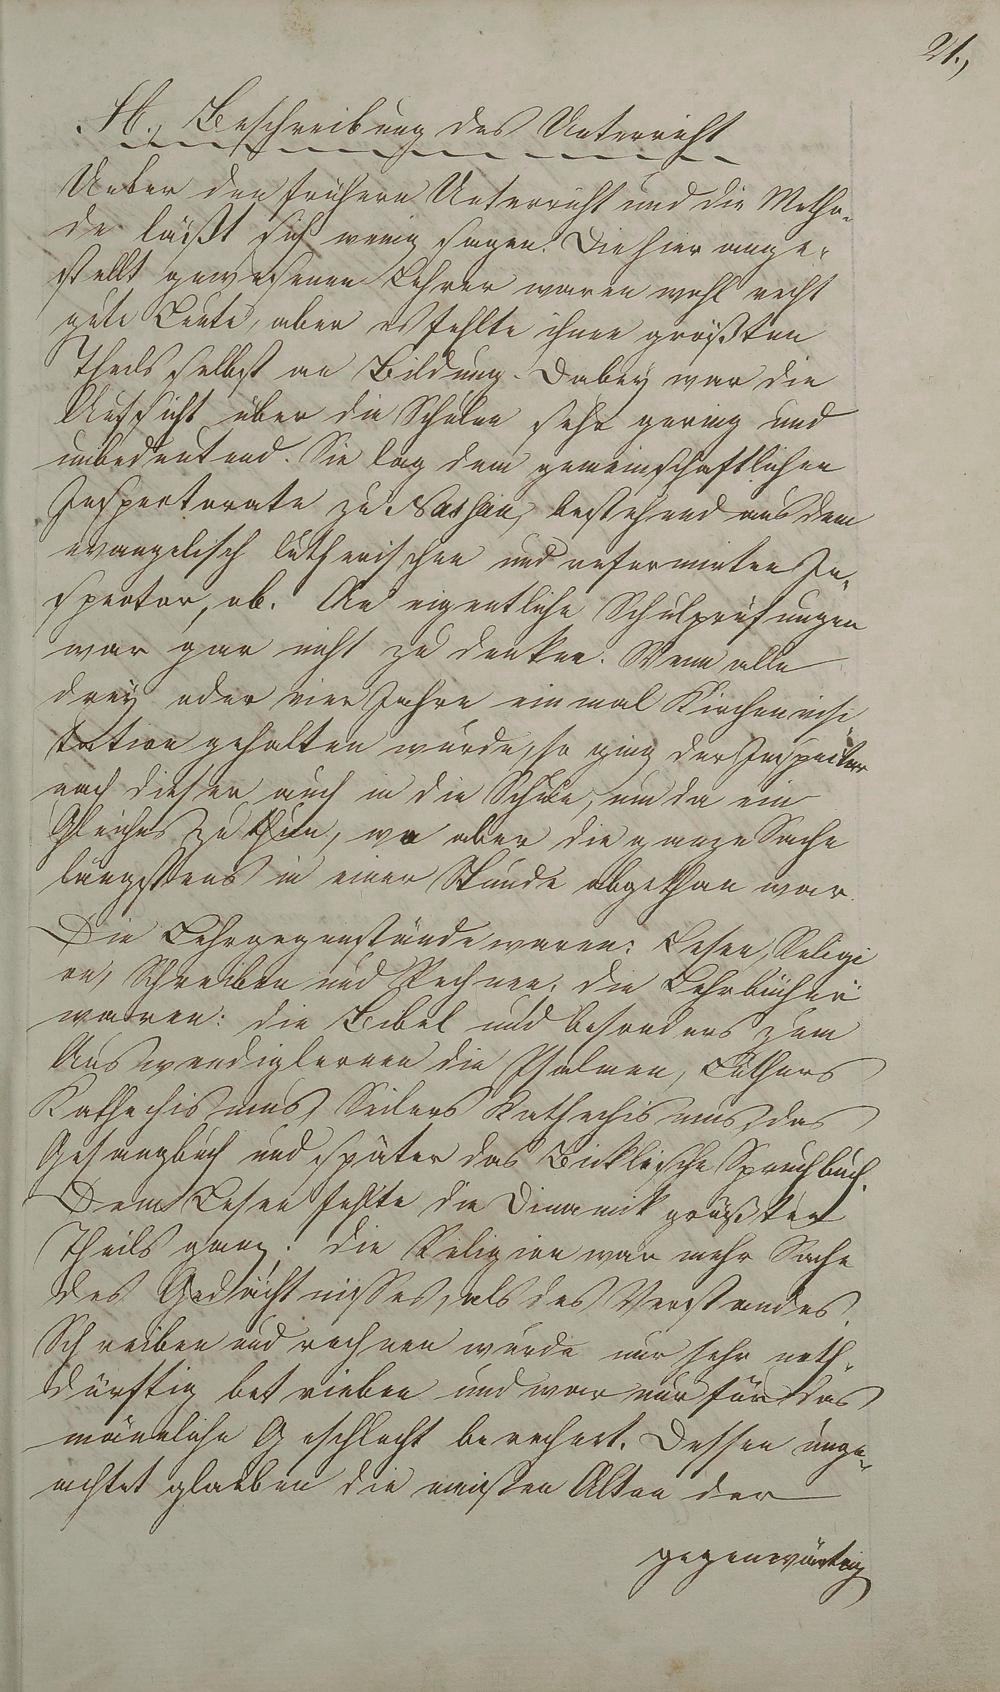 21.,
H., Beschreibung des Unterricht
Ueber den frühern Unterricht und die Metho-
de läßt sich wenig sagen. Die hier ange-
stellt gewesenen Lehrer waren wohl recht
gute Leute, aber es fehlte ihnen größten
Theils selbst an Bildung. Dabey war die
Aufsicht über die Schulen sehr gering und
unbedeutend. Sie lag dem gemeinschaftlichen
Inspectorate zu bestehend aus dem
evangelisch lutherischen und reformirten In-
spector, ob. An eigentliche Schulprüfungen
war gar nicht zu denken. Wenn alle
drey oder vier Jahre einmal Kirchenvisi-
tation gehalten wurde, so ging der Inspector
nach dieser auch in die Schule, um da ein
Gleiches zu thun, wo aber die ganze Sache
längstens in einer Stunde abgethan war.
Die Lehrgegenstände waren: Lesen, Religi
on, Schreiben und Rechnen; die Lehrbücher
waren: die Bibel und besonders zum
Auswendiglernen die Psalmen, Luthers
Kathechismus, Seilers Kathechismus, das
Gesangbuch und später das Bickleische Spruchbuch.
Dem Lesen fehlte die Dinamik größten
Theils ganz. Die Religion war mehr Sache
des Gedächtnisses, als des Verstandes.
Schreiben und rechnen wurde nur sehr noth-
dürftig betrieben und war nur für das
männliche Geschlecht berechnet. Dessen unge-
achtet glauben die meisten Alten der
gegenwärtig